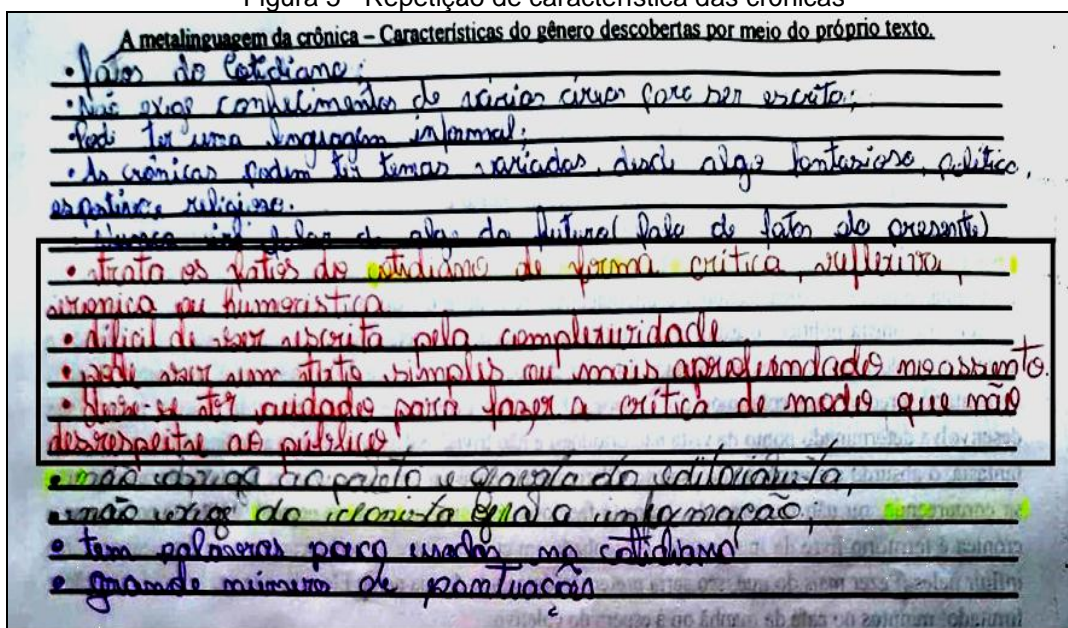 Figura 5 - Repetição de característica das crônicas
A metalinguagem da crônica – Características do gênero descobertas por meio do próprio texto.
• fatos do Cotidiano;
• Não exige conhecimentos de várias áreas para ser escrita;
• Pode ter uma linguagem informal;
• As crônicas podem ter temas variados, desde algo fantasioso, político,
esportivo e religioso.
• Nunca irá falar de algo do futuro (fala de fatos do presente)
• trata os fatos do cotidiano de forma crítica, reflexiva,
irronica ou humoristica
• dificil de ser escrita pela
• pode ser um texto simples ou mais no assunto.
• Deve-se ter cuidado para fazer a crítica de modo que não
desrespeite ao público
• não
• não exige do a informação;
• tem palavras usadas no cotidiano
• grande número de pontuação